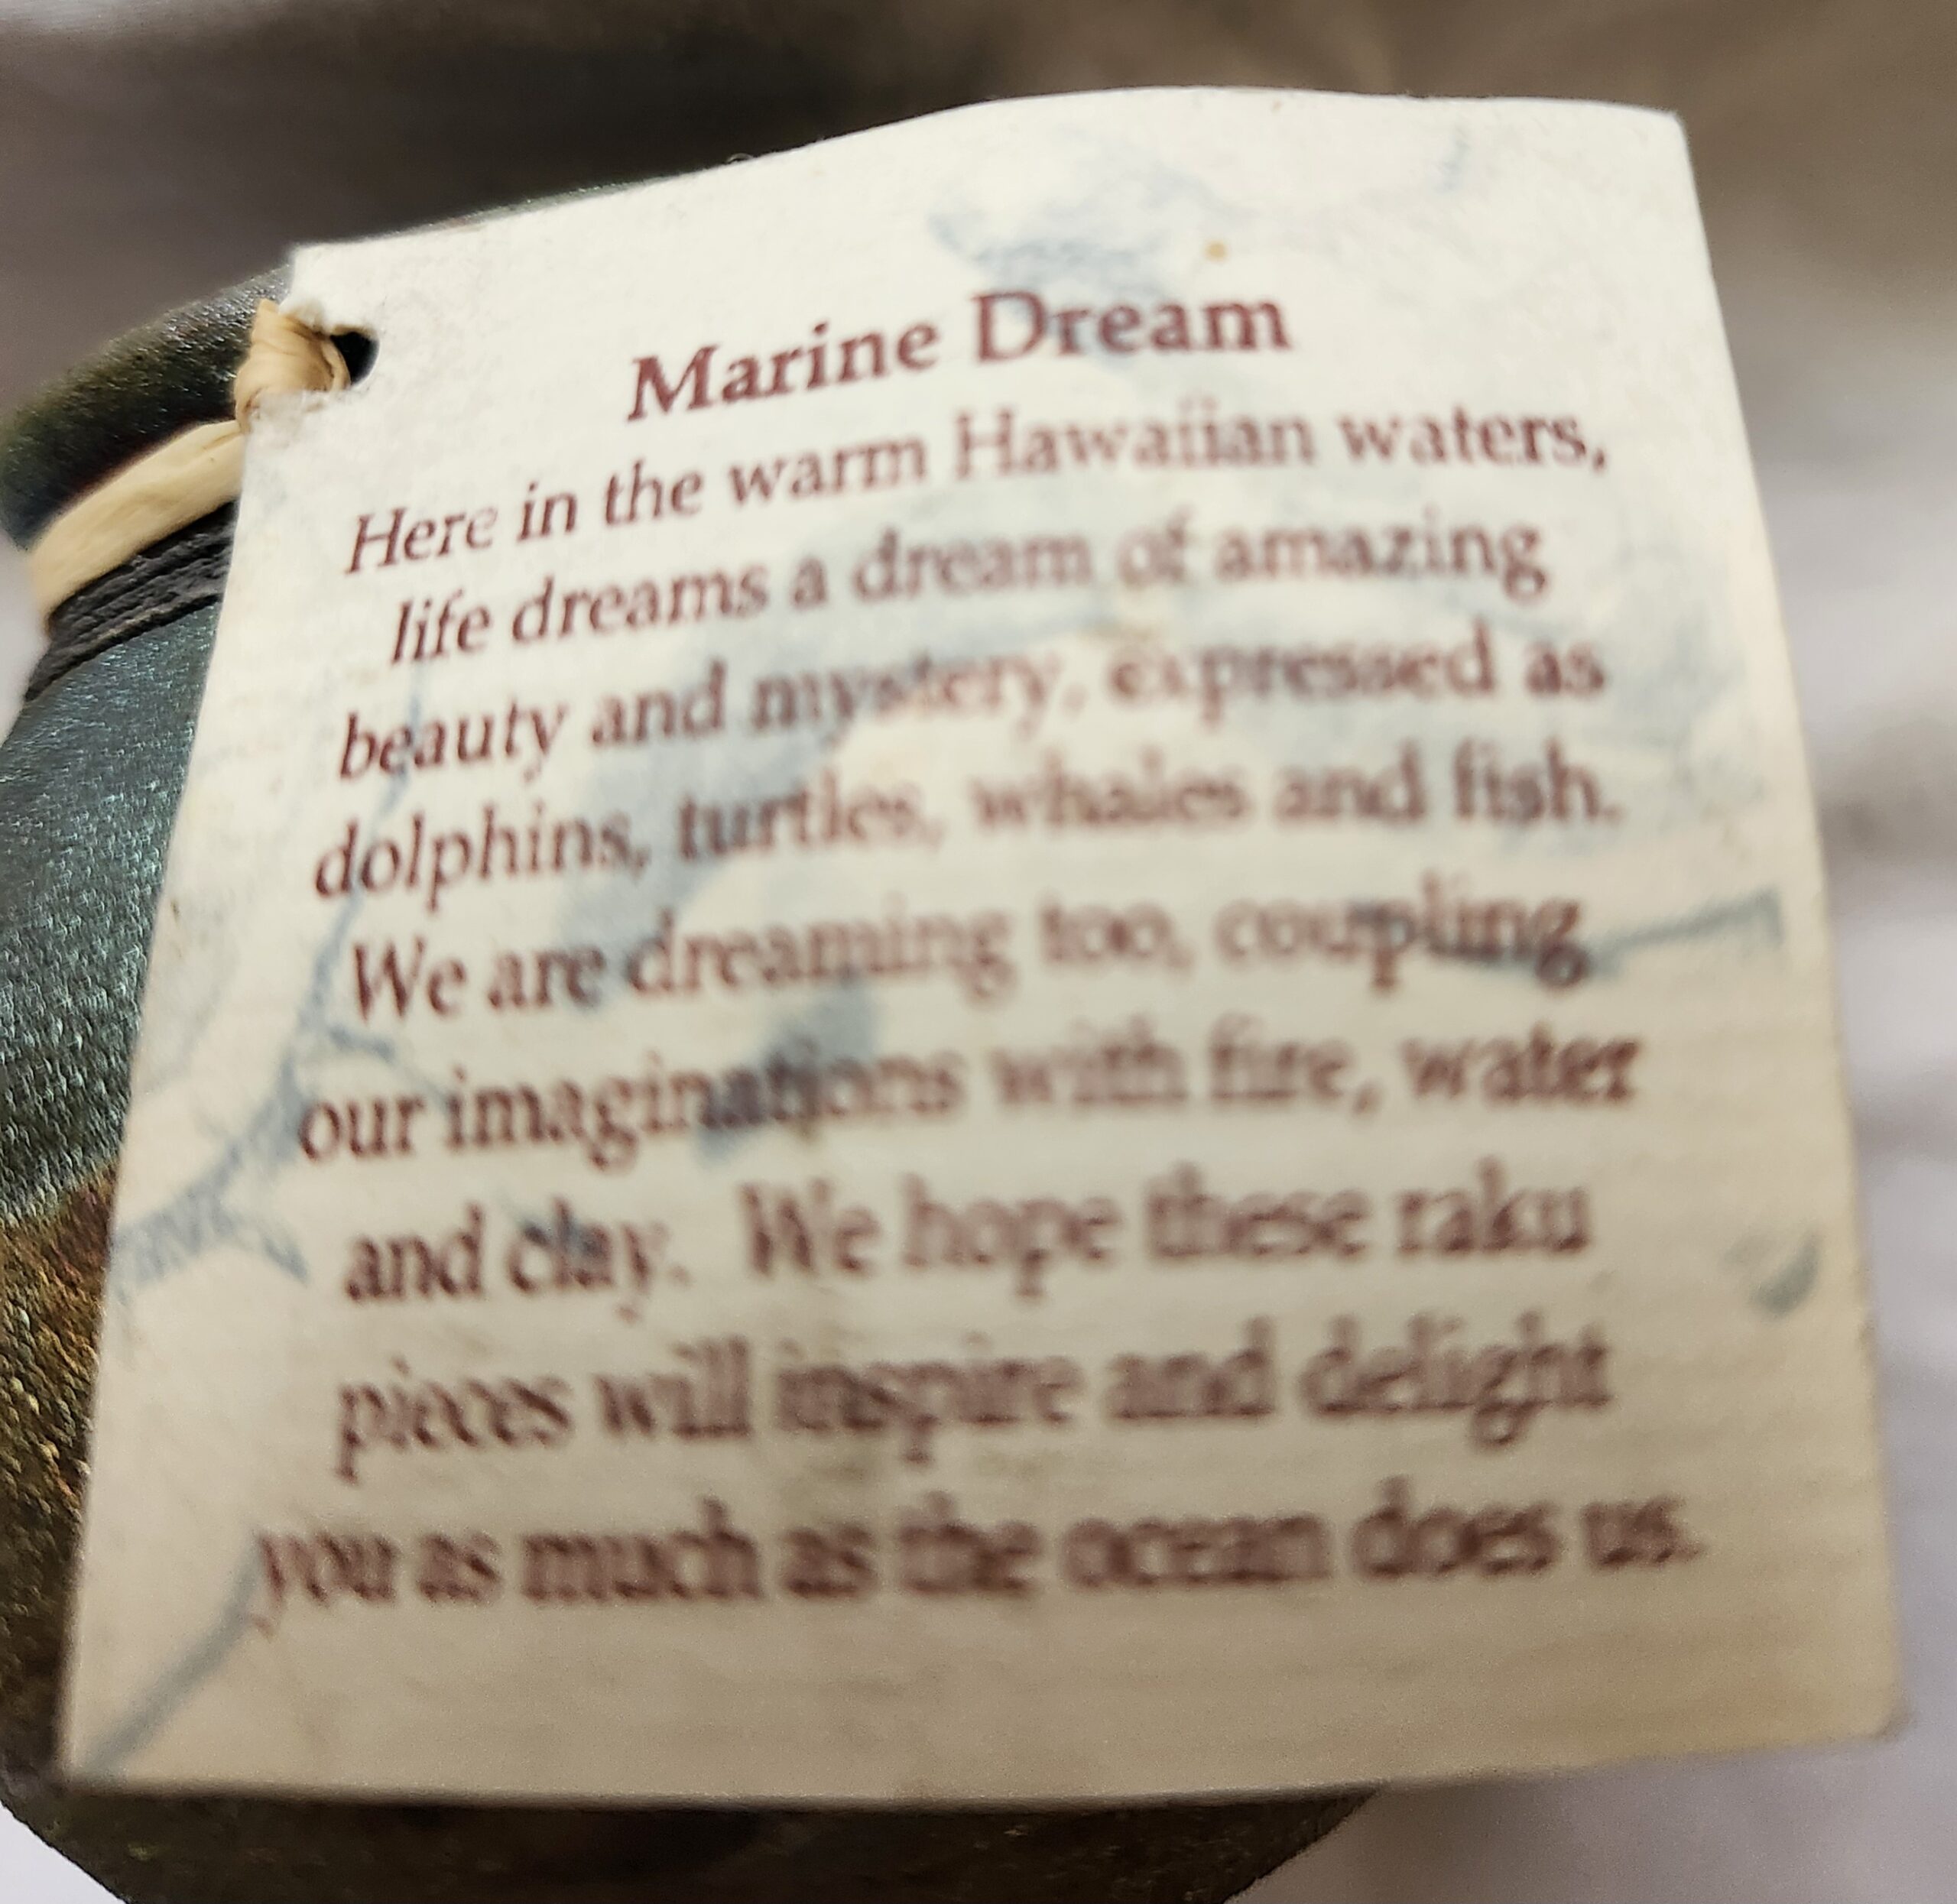 Marine Dream
Here in the warm Hawaiian waters,
life dreams a dream of amazing
beauty and mystery, expressed as
dolphins, turtles, whales and fish.
We are dreaming too, coupling
our imaginations with fire, water
and clay. We hope these raku
pieces will inspire and delight
you as much as the ocean does us.